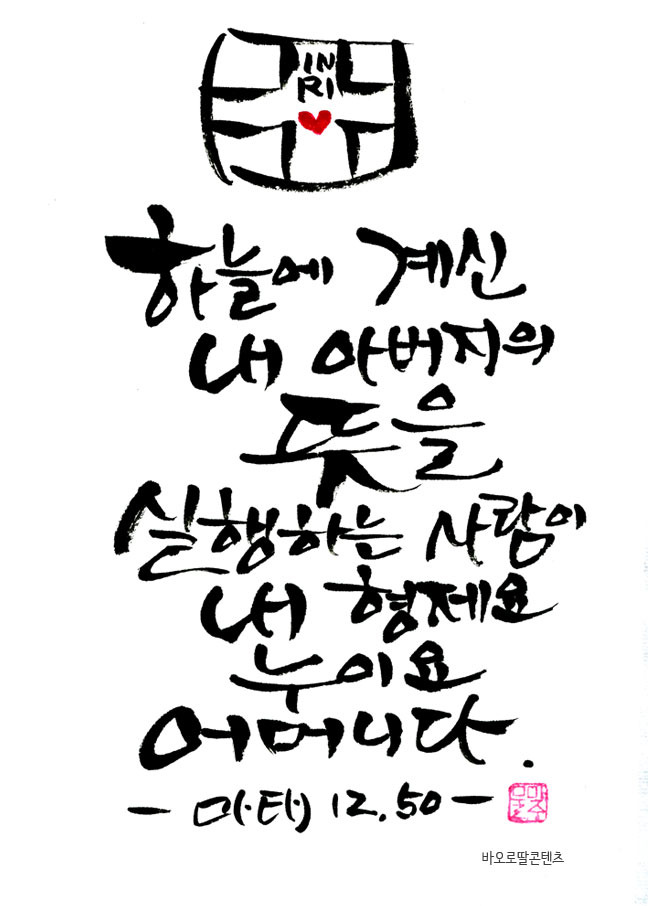 IN
RI
하늘에 계신
내 아버지의
뜻을
실행하는 사람이
내 형제요
누이요
어머니다.
- 마태 12,50 -
바오로딸콘텐츠